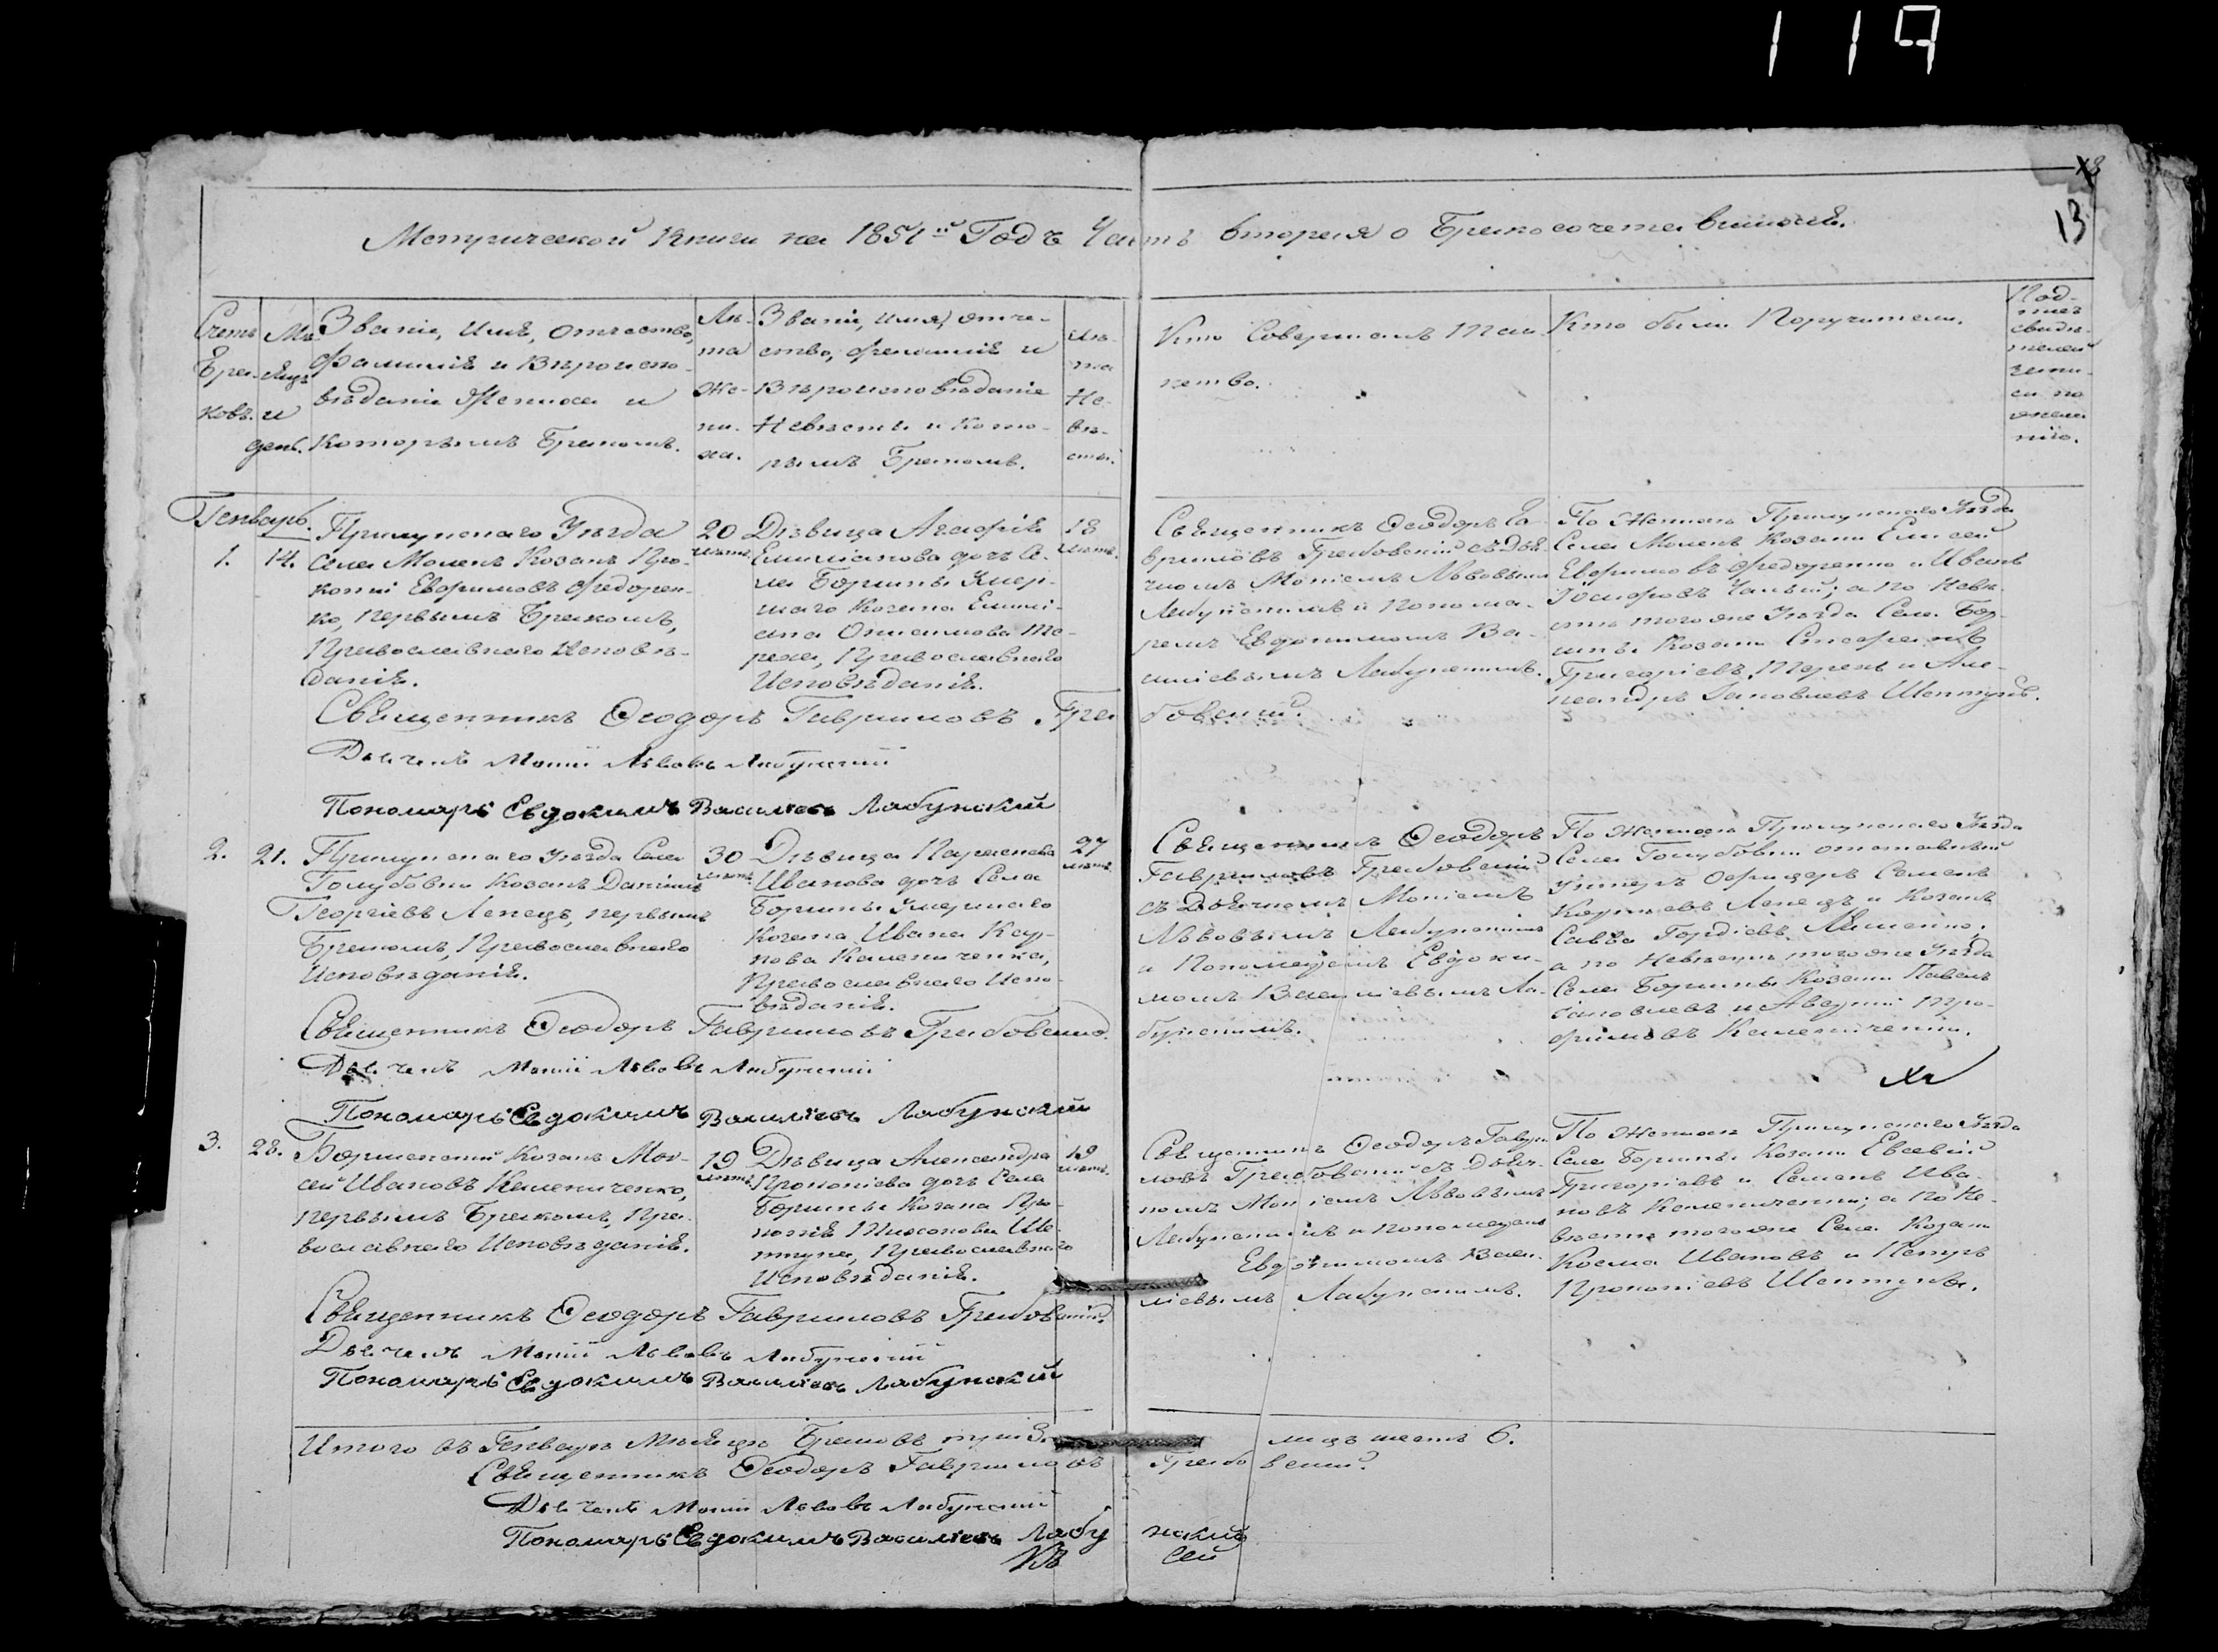 119
13
Метрической Книги на 1851й Годъ Часть вторая о Бракосочетавшихся.
Счетъ Браковъ.
Мѣсяцъ и день.
Званіе, Имя, Отчество,
Фамилія и Вѣроиспо-
вѣданіе Жениха и
которымъ Бракомъ.
Лѣ-
та
Же-
ни-
ха.
Званіе, имя, отче-
ство, фамилія и
Вѣроисповѣданіе
Невѣсты и кото-
рымъ Бракомъ.
Лѣ-
та
Не-
вѣ-
сты.
Кто Совершалъ Таин-
ство.
Кто были Поручители.
Под-
свидѣ-
телей
запи-
си по
жела
нію.
Генварь.
1.
14.
Прилуцкаго Уѣзда
Села Козакъ Про-
копій Евфимовъ Федорен-
ко, первымъ Бракомъ,
Православнаго Исповѣ-
данія.
20
лѣтъ.
Дѣвица Агафія
Емиліанова дочь Се-
ла Боршны Умер-
шаго Козака Емилі-
ана Онисимова Те-
реха, Православнаго
Исповѣданія.
18
лѣтъ.
Священникъ Ѳеодоръ Га-
вриловъ Грабовскій съ Дья-
чкомъ Мокіемъ Львовымъ
Лабунскимъ и понома-
ремъ Евдокимомъ Ва-
силіевымъ Лабунскимъ.
По Женихѣ Прилуцкаго Уѣзда
Села Козаки Елисей
Евфимовъ Федоренко и Иванъ
Іосифовъ а по Невѣ-
стѣ того же Уѣзда Села Бор-
шны Козаки Стефанъ
Григоріевъ Терехъ и Але-
ксандръ Іаковлевъ Шептунъ.
Священникъ Ѳеодоръ Гавриловъ Грабовскій
Дьячекъ Мокій Львовъ Лабунскій
Пономарь Евдокимъ Василіевъ Лабунскій
2.
21.
Прилуцкаго уѣзда Села
Голубовки Козакъ Даніилъ
Георгіевъ Лепецъ, первымъ
Бракомъ, Православнаго
Исповѣданія.
30
лѣтъ.
Дѣвица Параскева
Иванова дочь Села
Боршны Умершаго
Козака Ивана Кар-
пова Каленченка,
Православнаго Испо-
вѣданія.
27
лѣтъ.
Священникъ Ѳеодоръ
Гавриловъ Грабовскій
съ Дьячкомъ Мокіемъ
Львовымъ Лабунскимъ
и Пономаремъ Евдоки-
момъ Василіевымъ Ла-
бунскимъ.
По Женихѣ Прилуцкаго Уѣзда
Села Голубовки отставный
унтеръ офицеръ Семенъ
Лепецъ и Козакъ
Савва Гордіевъ
а по Невѣстѣ того же Уѣзда
Села Боршны Козаки Павелъ
Іаковлевъ и Тро-
фимовъ
Священникъ Ѳеодоръ Гавриловъ Грабовскій
Дьячекъ Мокій Львовъ Лабунскій
Пономарь Евдокимъ Василіевъ Лабунскій
3.
28.
Боршенскій Козакъ Мои-
сей Ивановъ
первымъ Бракомъ, Пра-
вославнаго Исповѣданія.
19
лѣтъ.
Дѣвица Александра
Прокопіева дочь Села
Боршны Козака Про-
копія Тихонова Ше-
птуна, Православнаго
Исповѣданія.
19
лѣтъ.
Священникъ Ѳеодоръ Гаври-
ловъ Грабовскій съ Дьяч-
комъ Мокіемъ Львовымъ
Лабунскимъ и пономаремъ
Евдокимомъ Васи-
ліевымъ Лабунскимъ.
По Женихѣ Прилуцкаго Уѣзда
Села Боршны Козаки Евсевій
Григоріевъ и Семенъ Ива-
новъ а по Не-
вѣстѣ того же Села Козаки
Косма Ивановъ и Петръ
Прокопіевъ Шептуны.
Священникъ Ѳеодоръ Гавриловъ Грабовскій
Дьячекъ Мокій Львовъ Лабунскій
Пономарь Евдокимъ Василіевъ Лабунскій
Итого въ Генварѣ Мѣсяцѣ Браковъ три 3. лицъ шесть 6.
Священникъ Ѳеодоръ Гавриловъ Грабовскій
Дьячекъ Мокій Львовъ Лабунскій
Пономарь Евдокимъ Василіевъ Лабунскій
Къ сей